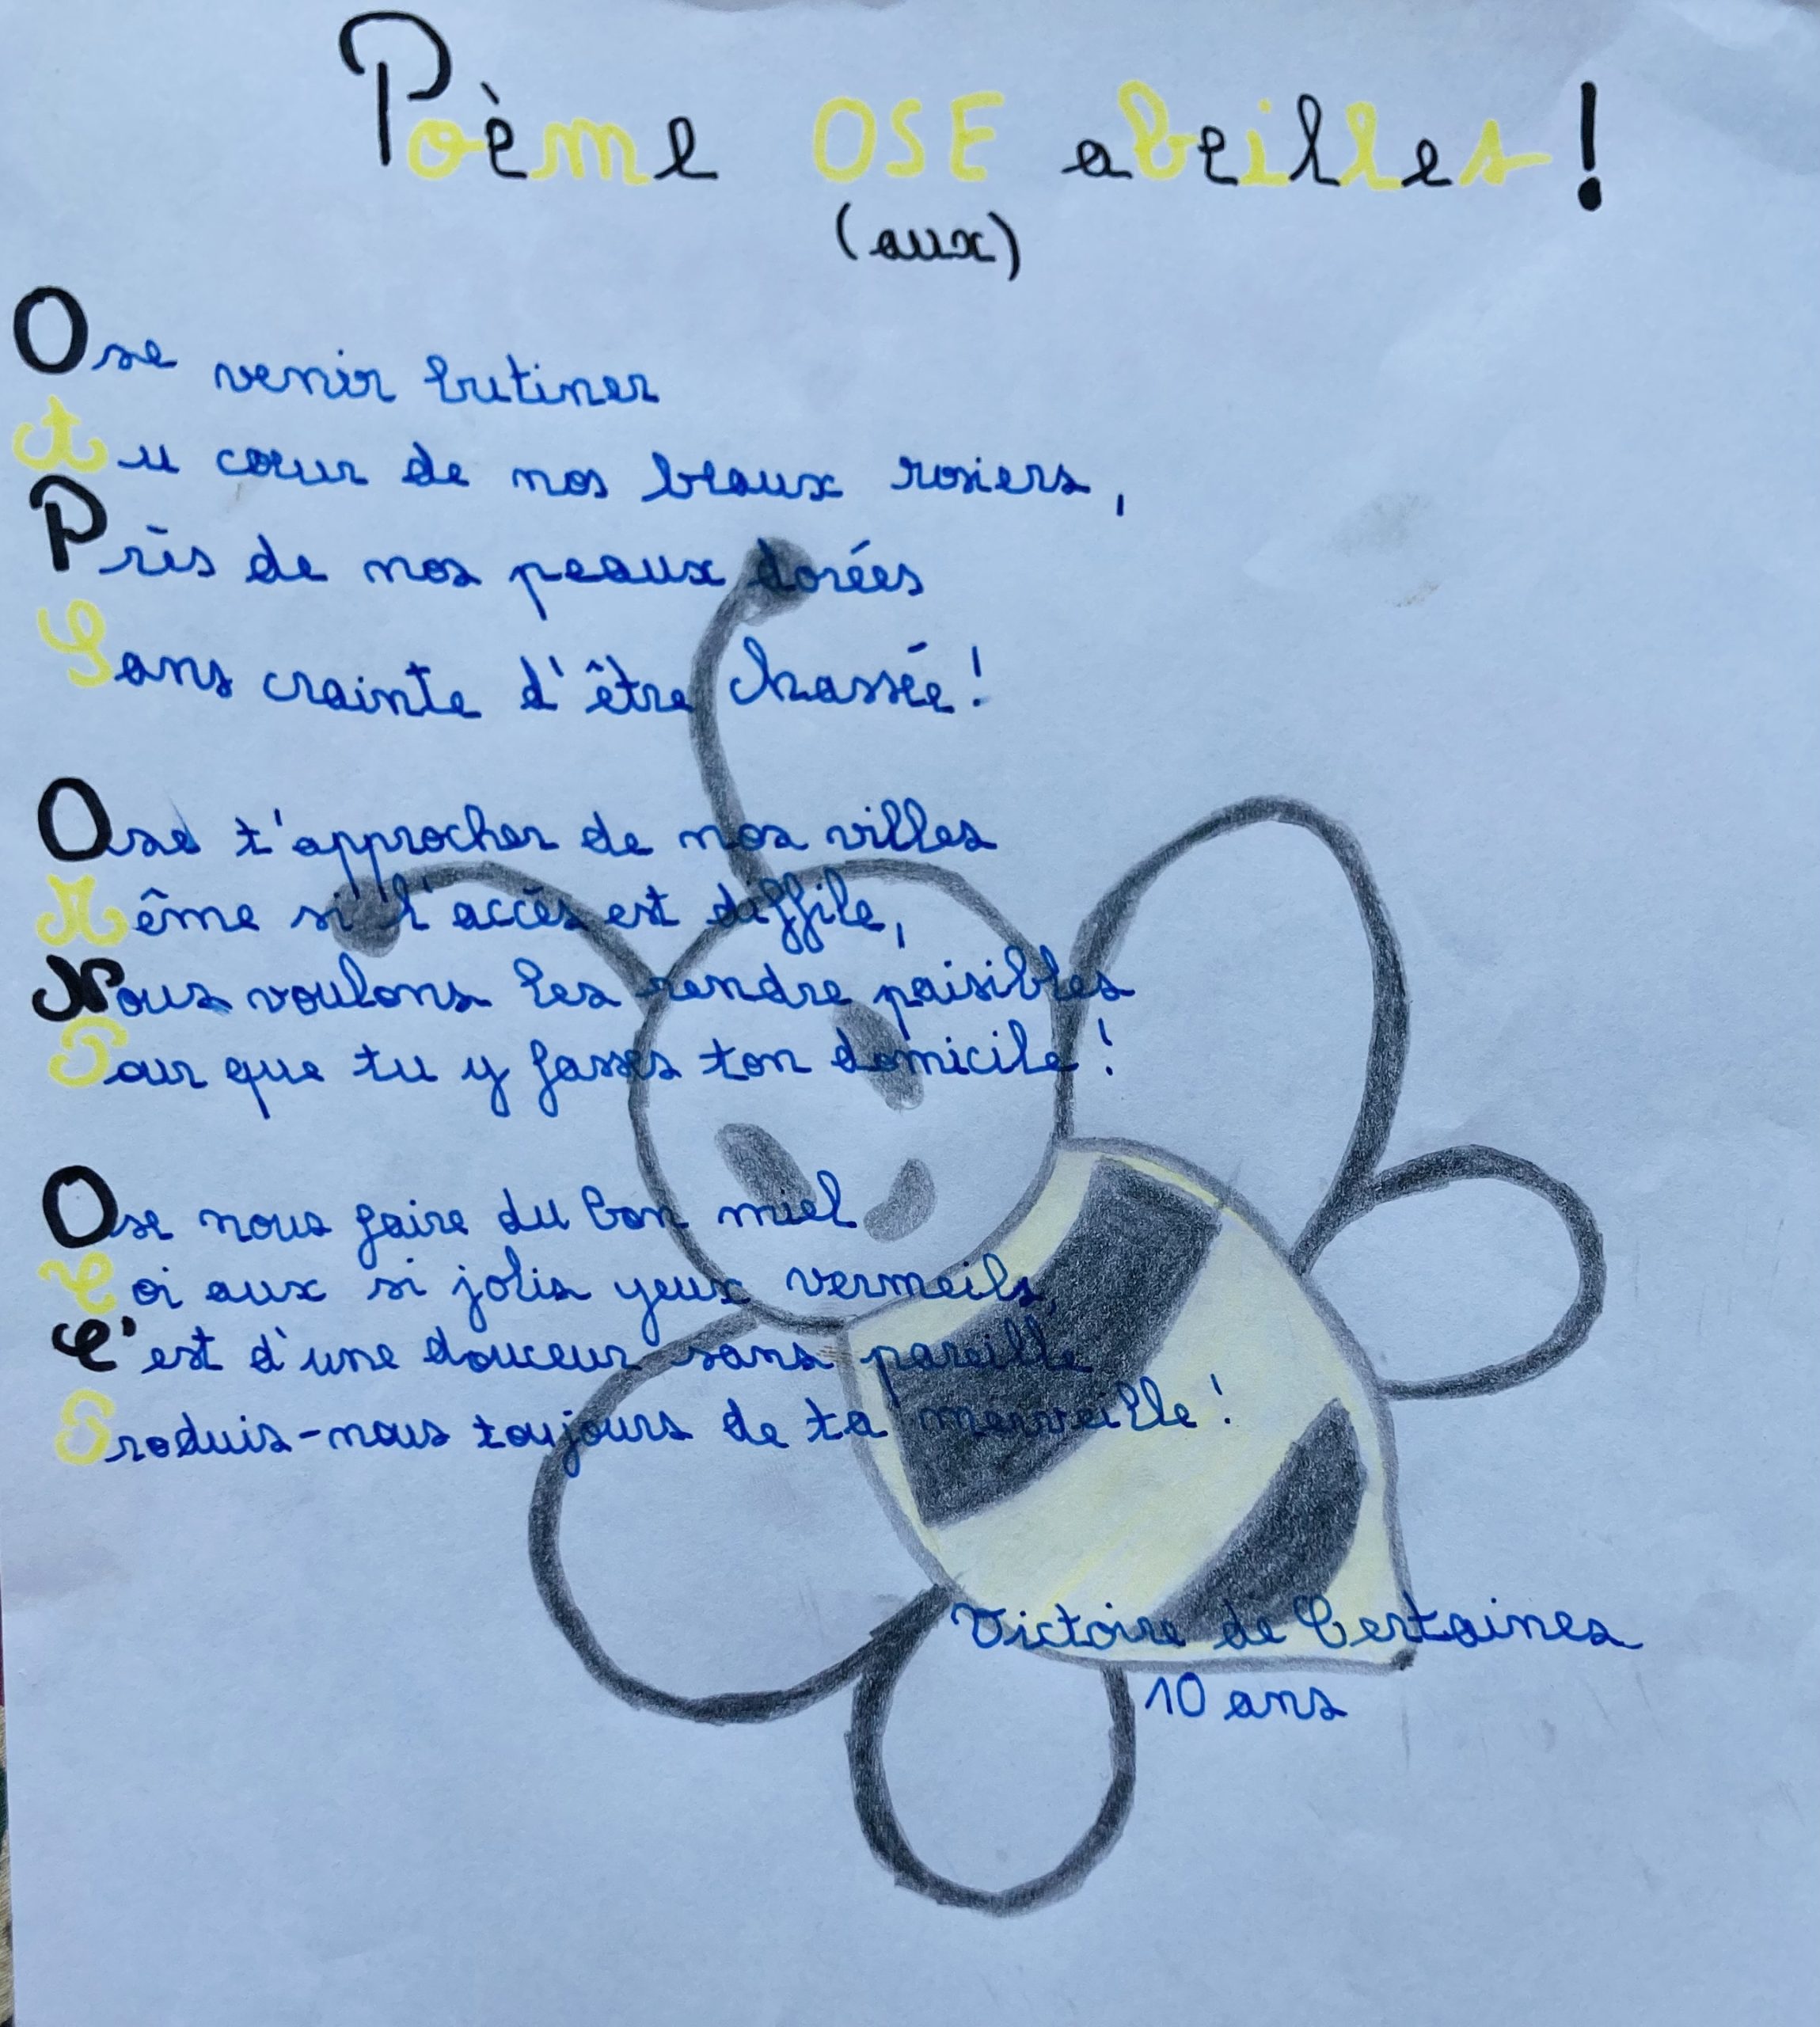 Poème OSE abeilles !
(aux)
Ose venir butiner
Au cœur de nos beaux rosiers,
Près de nos peaux dorées
Sans crainte d'être chassée !
Ose t'approcher de nos villes
Même si l'accès est diffile,
Nous voulons les rendre paisibles
Pour que tu y fasses ton domicile !
Ose nous faire du bon miel
Toi aux si jolis yeux vermeils,
C'est d'une douceur sans pareille
Produis-nous toujours de ta merveille !
Victoire de Certaines
10 ans